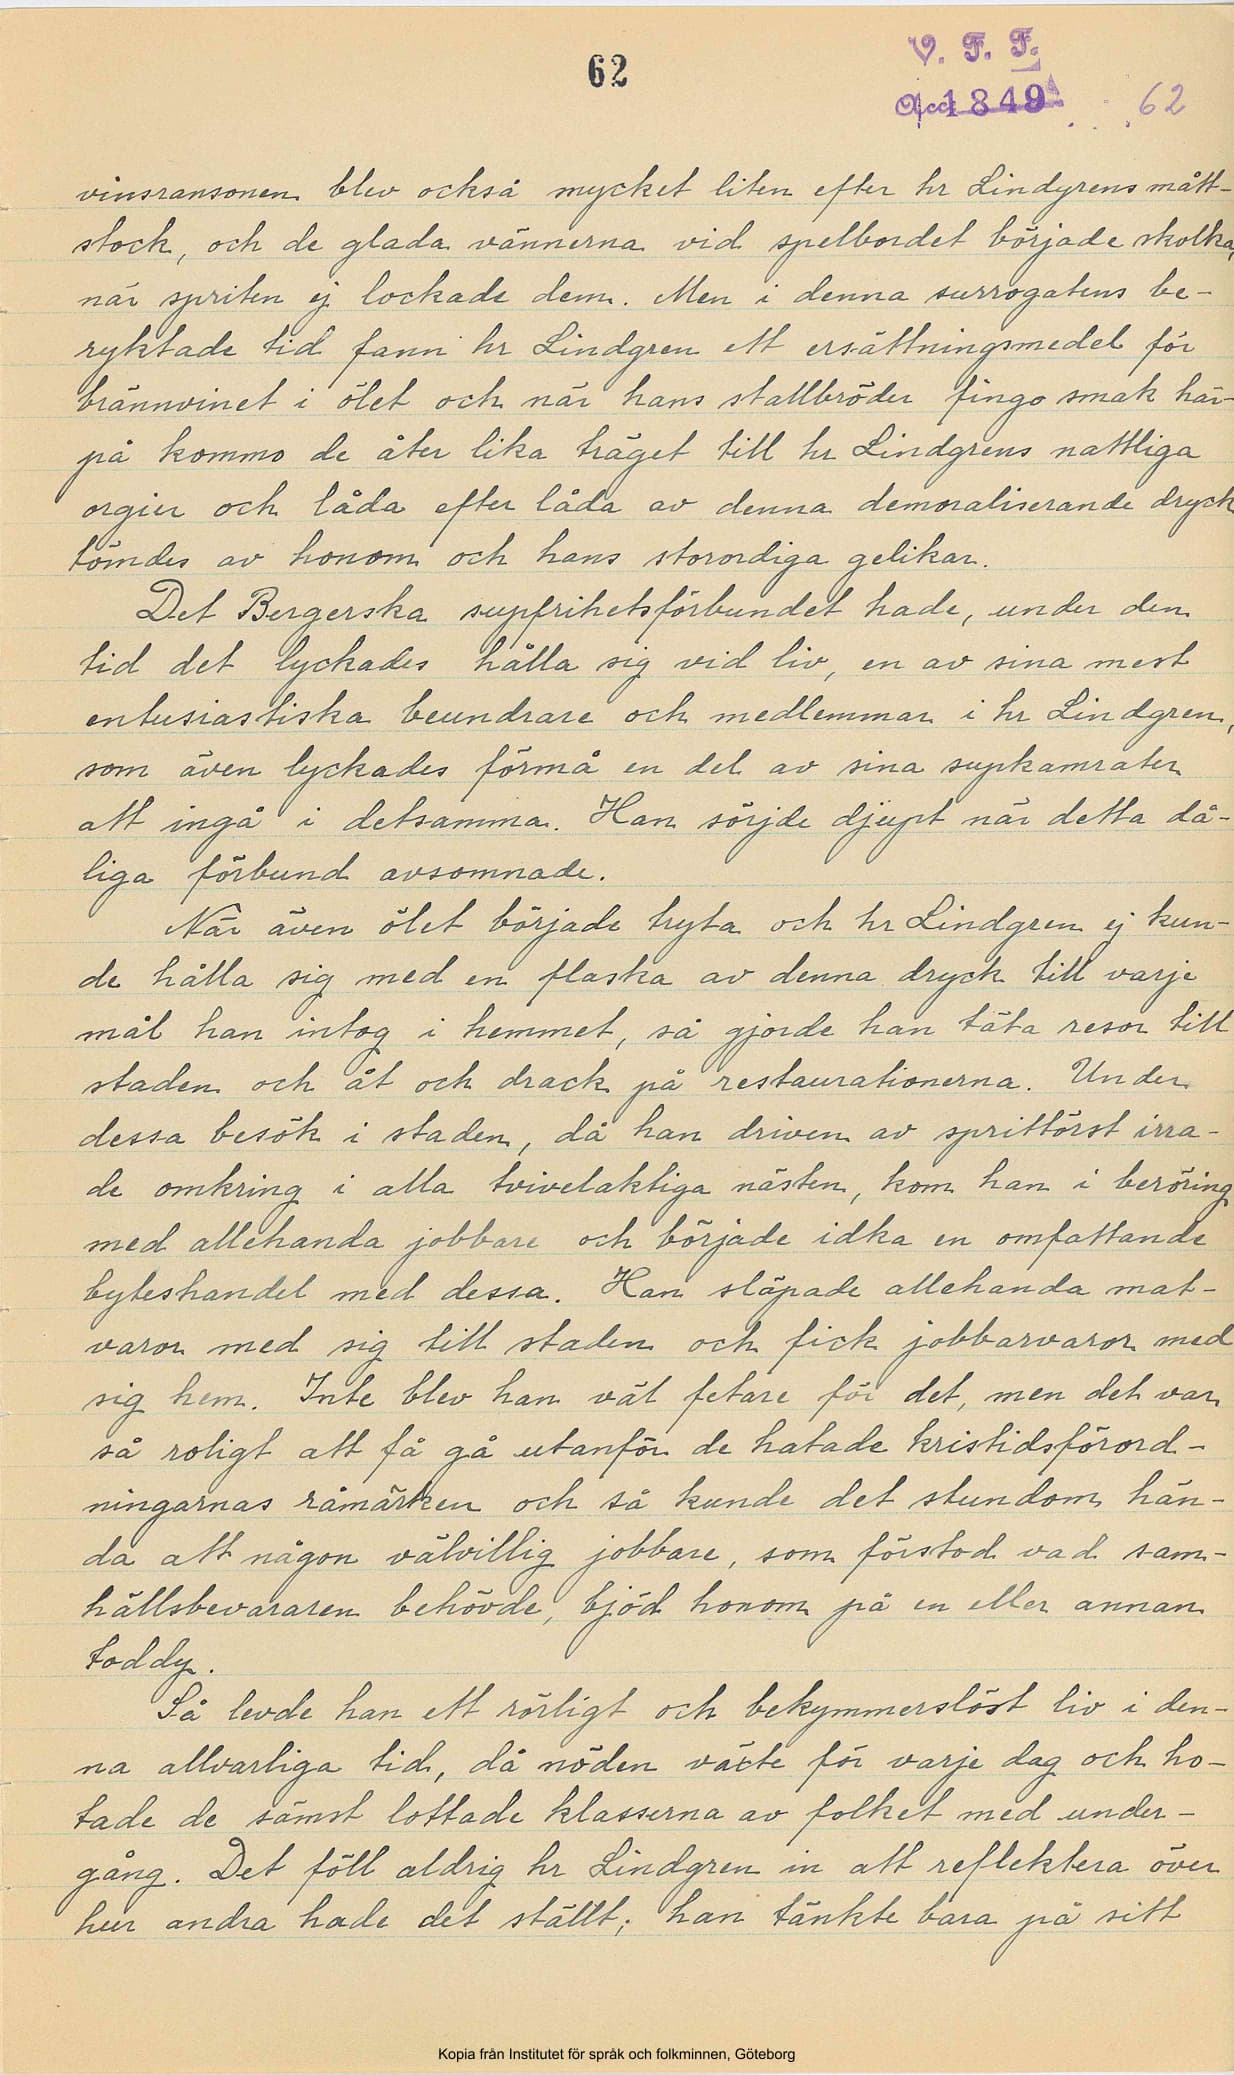 62
V. F. F.
Acc. 1849
62
vinsransonen blev också mycket liten efter hr Lindgrens mått-
stock, och de glada vännerna vid spelbordet började skolka,
när spriten ej lockade dem. Men i denna surrogatens be-
ryktade tid fann hr Lindgren ett ersättningsmedel för
brännvinet i ölet och när hans stallbröder fingo smak här-
på kommo de åter lika träget till hr Lindgrens nattliga
orgier och låda efter låda av denna demoraliserande dryck
tömdes av honom och hans storordiga gelikar.
Det Bergerska supfrihetsförbundet hade, under den
tid det lyckades hålla sig vid liv, en av sina mest
entusiastiska beundrare och medlemmar i hr Lindgren,
som även lyckades förmå en del av sina supkamrater
att ingå i detsamma. Han sörjde djupt när detta då-
liga förbund avsomnade.
När även ölet började tryta och hr Lindgren ej kun-
de hålla sig med en flaska av denna dryck till varje
mål han intog i hemmet, så gjorde han täta resor till
staden och åt och drack på restaurationerna. Under
dessa besök i staden, då han driven av sprittörst irra-
de omkring i alla tvivelaktiga nästen, kom han i beröring
med allehanda jobbare och började idka en omfattande
byteshandel med dessa. Han släpade allehanda mat-
varor med sig till staden och fick jobbarvaror med
sig hem. Inte blev han väl fetare för det, men det var
så roligt att få gå utanför de hatade kristidsförord-
ningarnas råmärken och så kunde det stundom hän-
da att någon välvillig jobbare, som förstod vad sam-
hällsbevararen behövde, bjöd honom på en eller annan
toddy.
Så levde han ett rörligt och bekymmerslöst liv i den-
na allvarliga tid, då nöden växte för varje dag och ho-
tade de sämst lottade klasserna av folket med under-
gång. Det föll aldrig hr Lindgren in att reflektera över
hur andra hade det ställt; han tänkte bara på sitt
Kopia från Institutet för språk och folkminnen, Göteborg